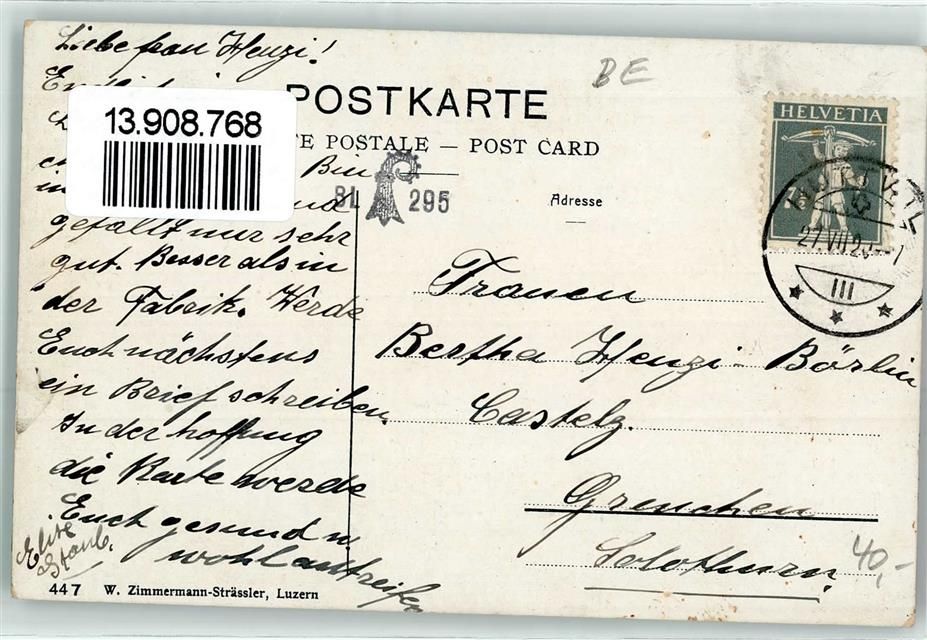 Liebe frau Henzi!
13.908.768
Bin
gefällt mir sehr
gut. Besser als in
der Fabrik. Werde
Euch nächstens
ein Brief schreiben.
In der hoffnung
die Karte werde
Euch gesund u
wohl antreifen
Staub.
447 W. Zimmermann-Strässler, Luzern
POSTKARTE
TE POSTALE — POST CARD
BL 295
Adresse
BE
HELVETIA
27.VII.2
III
Frauen
Bertha Henzi-Börlin
Castelz.
Grenchen
Solothurn.
40,-